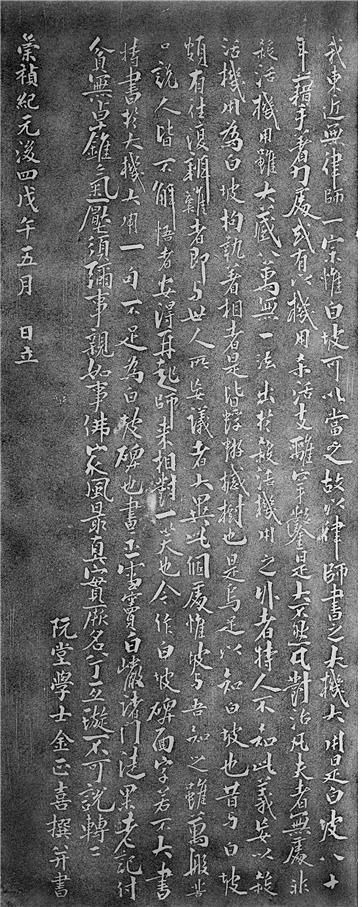 我東近無律師一宗惟白坡可以當之故以律師書之大機大用是白坡八十
年藉手著力處或有以機用殺活支離穿鑿是大不然凡對治凡夫者無處非
殺活機用雖大藏八萬無一法出於殺活機用之外者特人不知此義妄以殺
活機用為白坡拘執著相者是皆蜉蝣撼樹也是烏足以知白坡也昔與白坡
頗有往復辨難者即與世人所妄議者大異此個處惟坡與吾知之雖萬般苦
口說人皆不解悟者安得再起師來相對一笑也今作白坡碑面字若不大書
特書於大機大用一句不足為白坡碑也書示雪竇白巖諸門徒果老記付
貧無卓錐氣壓須彌事親如事佛家風最真實厥名兮亘璇不可說轉轉
阮堂學士金正喜撰并書
崇禎紀元後四戊午五月 日立